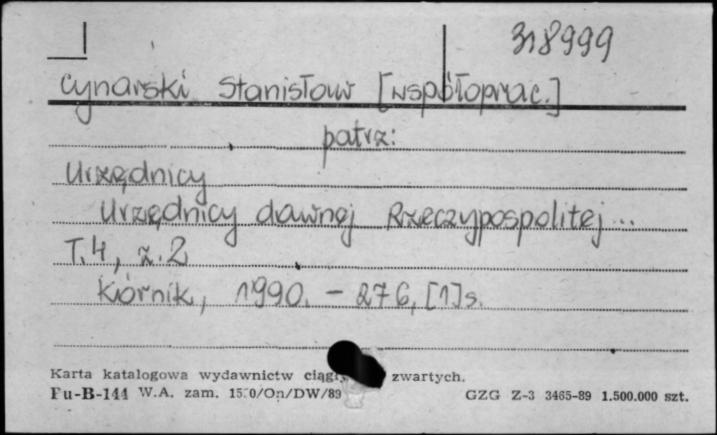 318999
Cynarski Stanisław [współoprac.]
patrz:
Urzędnicy
Urzędnicy dawnej Rzeczypospolitej...
T.4, z.2
Kórnik, 1990. - 276, [1] s.
Karta katalogowa wydawnictw zwartych.
Pu-B-144 W.A. zam. GZG Z-3 3465-89 1.500.000 szt.